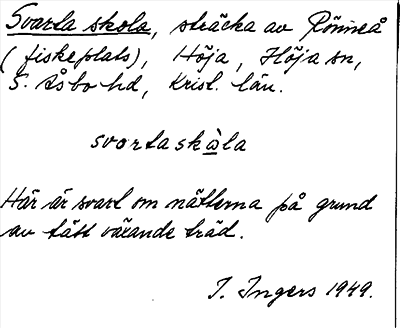 Svarta skola, sträcka av Rönneå
(fiskeplats), Höja, Höja sn,
S. Åsbo hd, Krist. län.
svortaskàla
Här är svart om nätterna på grund
av tätt växande träd.
I. Ingers 1949.